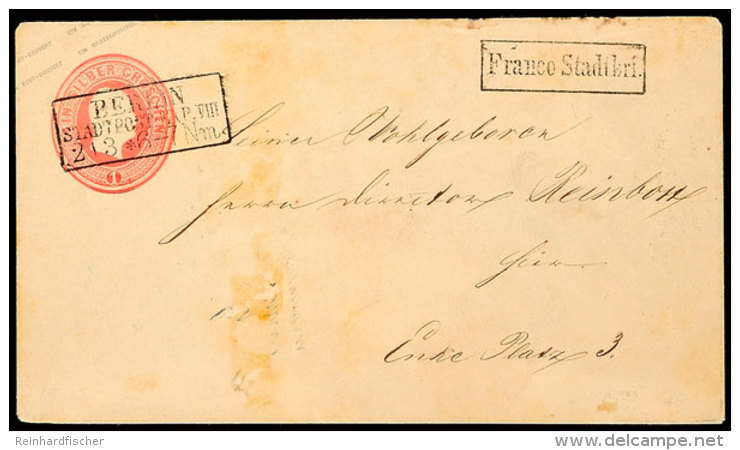 EIN SILBER GROSCHEN
1
BERLIN
STADTPOST-EXP. VIII
2 3 * 6-7 Nm
Franco Stadtbri.
Seiner Wohlgeboren
Herrn Director Reinbott
hier
Enke Platz 3.
Reinhardfischer
delcampe.net